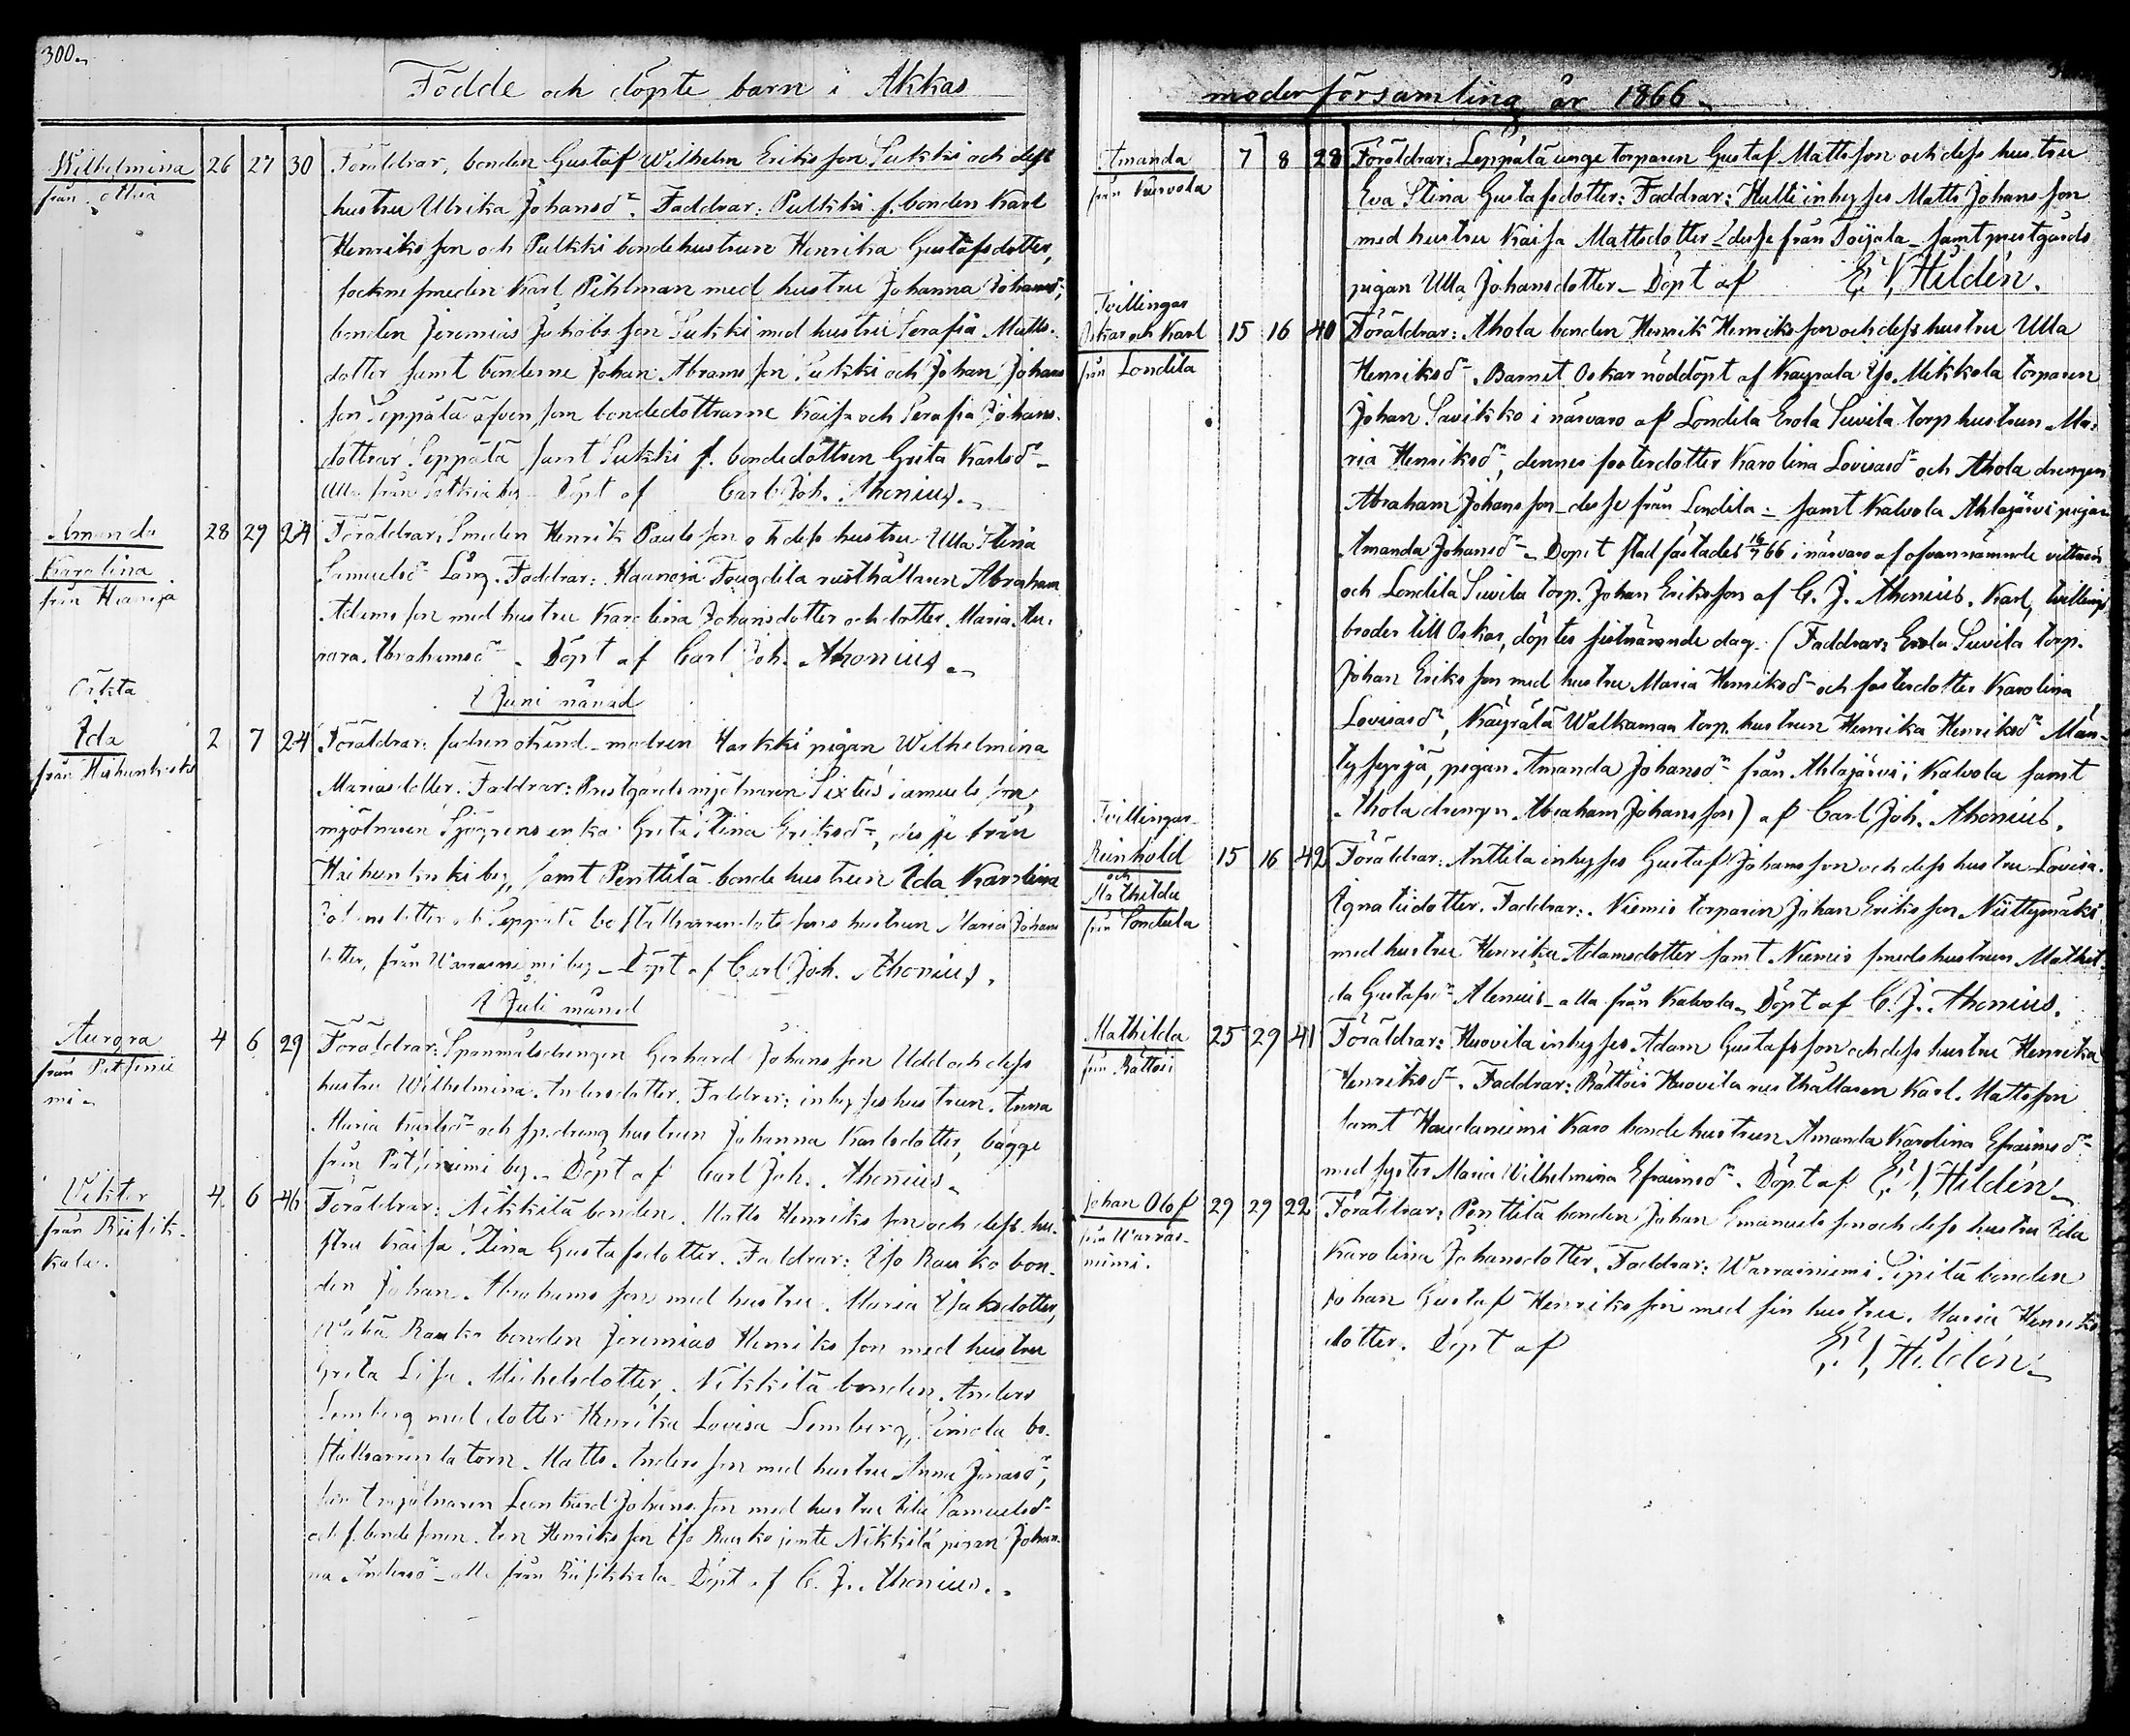 300.
Födde och döpte barn i Akkas
Wilhelmina 26 27 30 Föräldrar, bonden Gustaf Wilhelm Eriksson Sukki och dess
från
hustru Ulrika Johansdr. Faddrar: Pulkki f. bonden Karl
Henriksson och Pulkki bondehustrun Henrika Gustafsdotter,
sockne smeden Karl Pihlman med hustru Johanna Johansdr,
bonden Jeremias Jakobsson Sukki med hustru Serafia Matts-
dotter samt bönderne Johan Abramsson Sukki och Johan Johans
son Seppälä äfven som bondedöttrarne Kaisa och Serafia Johans-
dottrar Seppälä samt Sukki f. bondedottren Greta Karlsdr
alla från by Döpt af Carl Joh. Ahonius.
Amanda 28 29 24 Föräldrar, Smeden Henrik Paulsson och dess hustru Ulla Stina
Karolina
från
Samuelsdr Lång. Faddrar: rusthållaren Abraham
Adamsson med hustru Karolina Johansdotter och dotter Maria Au-
rora Abrahamsdr. Döpt af Carl Joh. Ahonius.
I Juni månad
Oäkta
Ida 2 7 24 Föräldrar: fadren okänd modren Harkki pigan Wilhelmina
från
Mariasdotter. Faddrar: Prestgårds mjölnaren Sixtus Samuelsson,
mjölnaren Sjögrens enka Greta Stina Eriksdr, desse från
by, samt Penttilä bonde hustrun Ida Karolina
Johansdotter och Seppälä hustrun Maria Johans
dotter, från Warrasniemi by Döpt af Carl Joh. Ahonius.
I Juli månad
Aurora 4 6 29 Föräldrar: Spanmålsdrengen Gerhard Johansson Udd och dess
från
mi
hustru Wilhelmina Andersdotter. Faddrar: inhyses hustrun Anna
Maria Karlsdr och sp.dreng hustrun Johanna Karlsdotter, bägge
från by. Döpt af Carl Joh. Ahonius.
Viktor 4 6 46 Föräldrar: Nikkilä bonden Matts Henriksson och dess hu-
från Riisik-
kala.
stru Kaisa Stina Gustafsdotter. Faddrar: Iso Rauko bon-
den Johan Abrahamsson med hustru Maria Isaksdotter,
Wähä Rauko bonden Jeremias Henriksson med hustru
Greta Lisa Michelsdotter, Nikkilä bonden Anders
Lemberg med dotter Henrika Lovisa Lemberg, Simola bo-
ställsarrendatorn Matts Andersson med hustru Anna Jonasdr,
mjölnaren Leonhard Johansson med hustru Samuelsdr
och f. bonde sonen Henriksson Iso Rauko jemte Nikkilä pigan Johan-
na Andersdr alla från Riisikkala. Döpt af C. J. Ahonius.
moderförsamling år 1866.
Amanda 7 8 28 Föräldrar: Leppälä unge torparen Gustaf Mattsson och dess hustru
från
Eva Stina Gustafsdotter: Faddrar: Hulti inhyses Matts Johansson
med hustru Kaisa Mattsdotter desse från Toijala samt prestgårds
pigan Ulla Johansdotter. Döpt af Hildén.
Tvillingar
Oskar och Karl 15 16 40 Föräldrar: Ahola bonden Henrik Henriksson och dess hustru Ulla
från Londila
Henriksdr. Barnet Oskar nöddöpt af Käyrälä Yso Mikkola torparen
Johan Savikko i närvaro af Londila Erola Suvila torp hustrun Ma-
ria Henriksdr, dennes fosterdotter Karolina Lovisasdr och Ahola drengen
Abraham Johansson desse från Londila samt Kalvola Ahlajärvi pigan
Amanda Johansdr. Dopet stadfästades 16/7 66 i närvaro af ofvannämnde vittnen
och Londila Suvila torp. Johan Eriksson af C. J. Ahonius. Karl, tvillings
broder till Oskar, döptes sistnämnde dag. (Faddrar: Erola Suvila torp.
Johan Eriksson med hustru Maria Henriksdr och fosterdotter Karolina
Lovisasdr, Käyrälä Walkaman torp. hustrun Henrika Henriksdr Män-
tysyrjä, pigan Amanda Johansdr från Ahlajärvi i Kalvola samt
Ahola drengen Abraham Johansson) af Carl Joh. Ahonius.
Tvillingar
Reinhold 15 16 42 Föräldrar: Anttila inhyses Gustaf Johansson och dess hustru Lovisa
och
Mathilda
från Sontula
Ignatiidotter. Faddrar: Niemis torparen Johan Eriksson Niittymäki
med hustru Henrika Adamsdotter samt Niemis smeds hustrun Mathil-
da Gustafsdr Alenius alla från Kalvola. Döpt af C. J. Ahonius.
Mathilda 25 29 41 Föräldrar: Huovila inhyses Adam Gustafsson och dess hustru Henrika
från Rättöis
Henriksdr. Faddrar: Rättöis Huovila rusthållaren Karl Mattsson
samt Haudaniemi Karo bonde hustrun Amanda Karolina Efraimsdr
med syster Maria Wilhelmina Efraimsdr. Döpt af Hildén.
Johan Olof 29 29 22 Föräldrar: Penttilä bonden Johan Emanuelsson och dess hustru Ida
från Warras-
niemi.
Karolina Johansdotter. Faddrar: Warrasniemi bonden
Johan Gustaf Henriksson med sin hustru Maria Henriks
dotter. Döpt af Hildén.